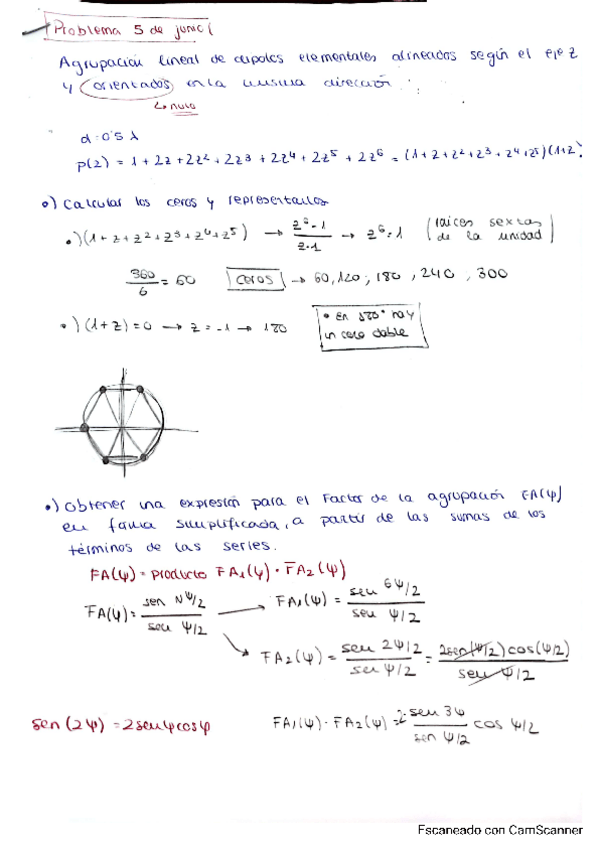 Problema 5 de junio
Agrupación lineal de dipolos elementales alineados según el eje z
y orientados en la misma dirección.
↳ nulo
d = 0'5 λ
P(z) = 1 + 2z + 2z² + 2z³ + 2z⁴ + 2z⁵ + z⁶ = (1 + z + z² + z³ + z⁴ + z⁵)(1+z).
•) Calcular los ceros y representarlos
•) (1 + z + z² + z³ + z⁴ + z⁵) → z⁶-1 / z-1 → z⁶=1 (raíces sextas de la unidad)
360/6 = 60 ceros → 60, 120, 180, 240, 300
•) (1+z) = 0 → z = -1 → 180
• En 180° hay un cero doble
•) Obtener una expresión para el Factor de la agrupación FA(ψ)
en forma simplificada, a partir de las sumas de los
términos de las series.
FA(ψ) = producto FA₁(ψ) · FA₂(ψ)
FA(ψ) = sen Nψ/2 / sen ψ/2 → FA₁(ψ) = sen 6ψ/2 / sen ψ/2
FA₂(ψ) = sen 2ψ/2 / sen ψ/2 = 2sen(ψ/2)cos(ψ/2) / sen ψ/2
sen(2ψ) = 2senψcosψ FA₁(ψ) · FA₂(ψ) = 2 sen 3ψ / sen ψ/2 cos ψ/2
Escaneado con CamScanner